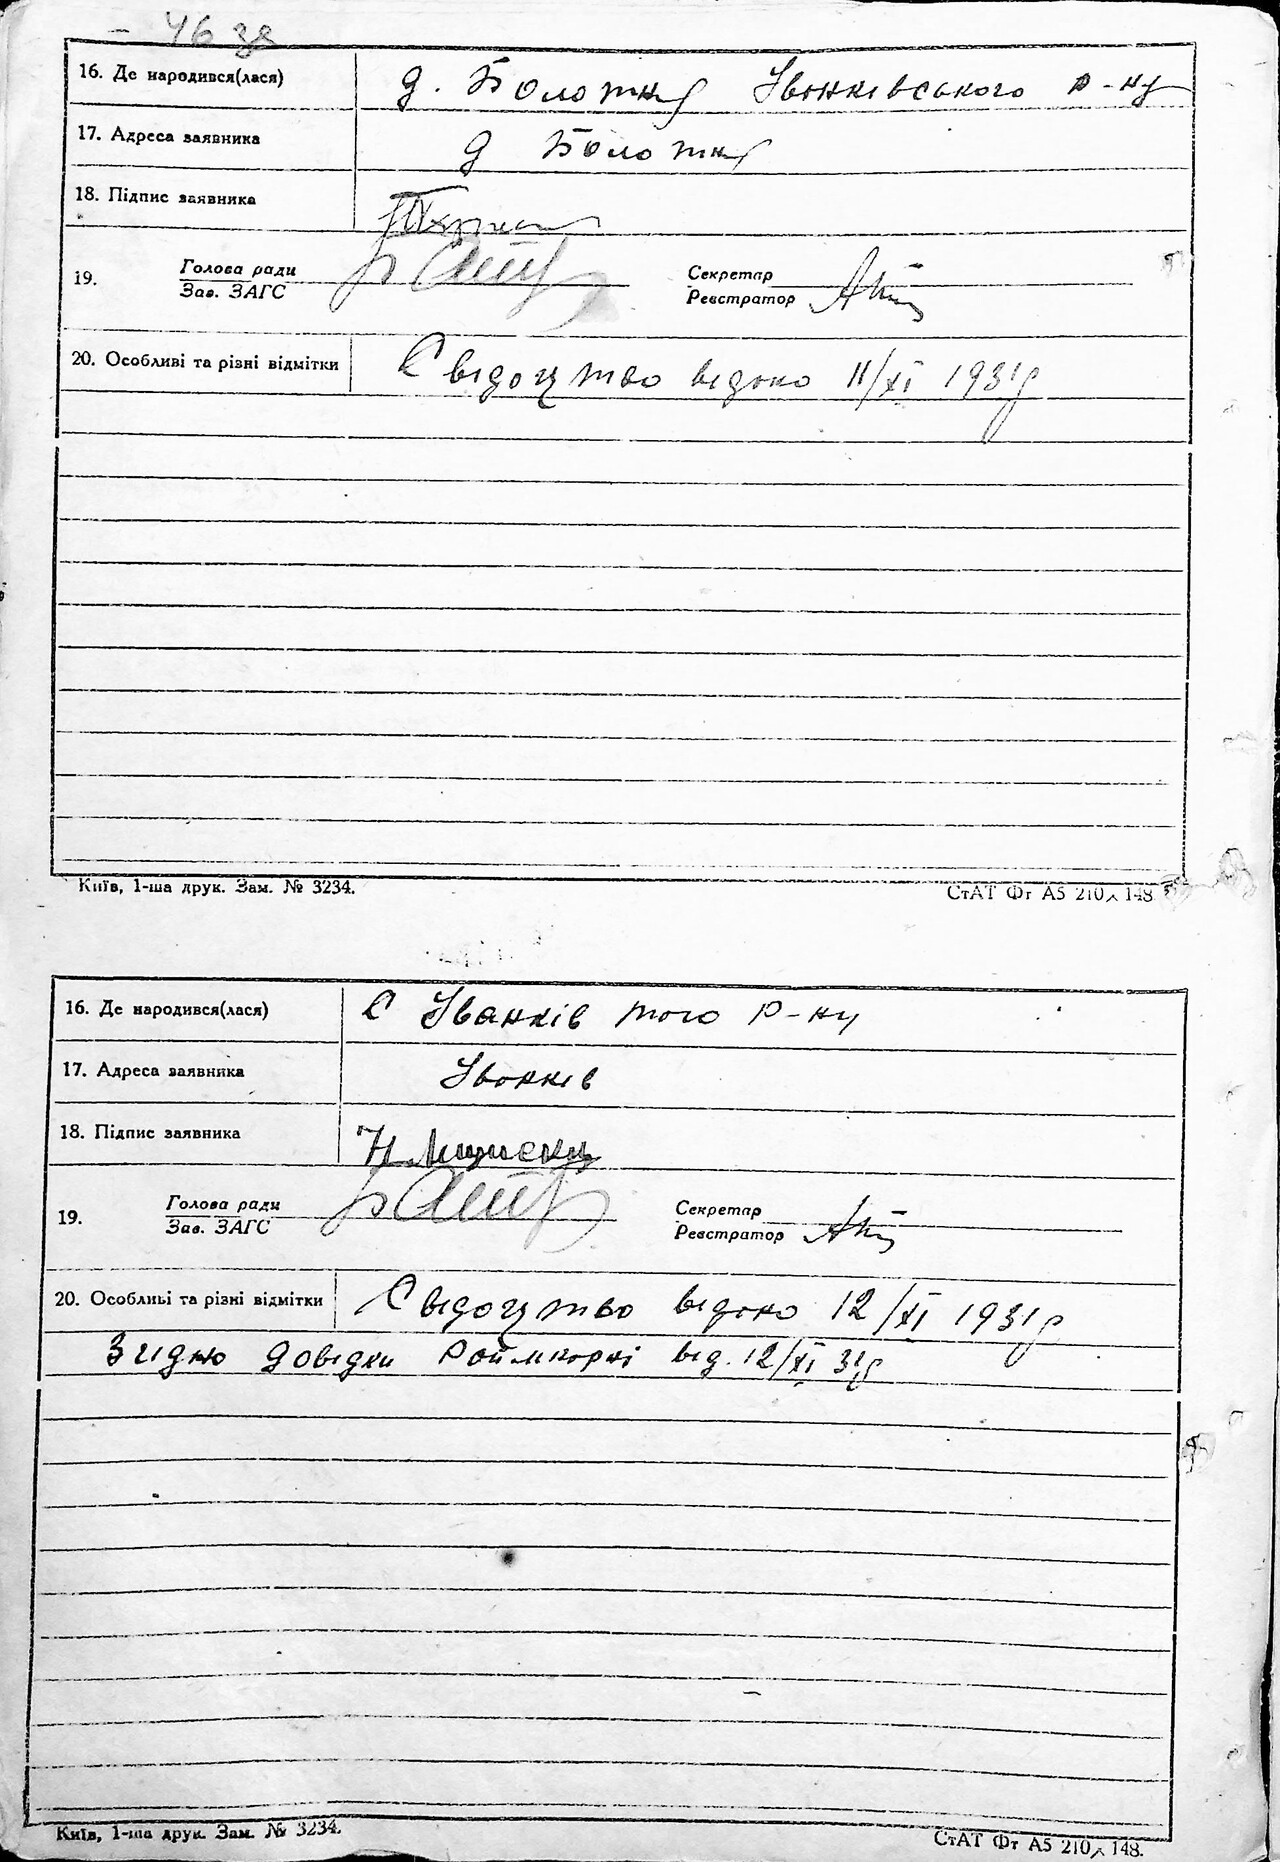 46 зв
16. Де народився(лася) д. Болотня Іванківського р-ну
17. Адреса заявника д Болотня
18. Підпис заявника
19. Голова ради Секретар
Зав. ЗАГС Реєстратор
20. Особливі та різні відмітки Свідоцтво видано 11/XI 1931р
Київ, 1-ша друк. Зам. № 3234. СтАТ Фт А5 210 × 148
16. Де народився(лася) С Іванків того р-ну
17. Адреса заявника Іванків
18. Підпис заявника Н
19. Голова ради Секретар
Зав. ЗАГС Реєстратор
20. Особливі та різні відмітки Свідоцтво видано 12/XI 1931р
Згидно довідки від. 12/XI 31р
Київ, 1-ша друк. Зам. № 3234. СтАТ Фт А5 210 × 148.